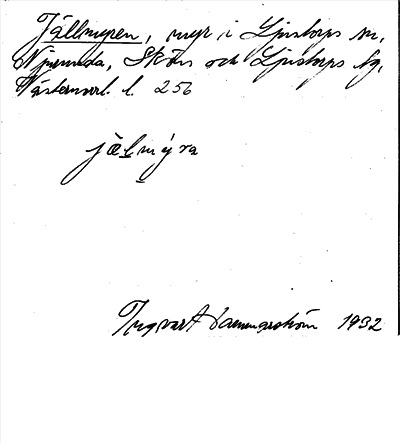 Jällmyren, myr i Ljustorps sn,
Njurunda, Sköns och Ljustorps tg,
Västernorrl. l. 256
jälmýra
Ingvart Hammarström 1932